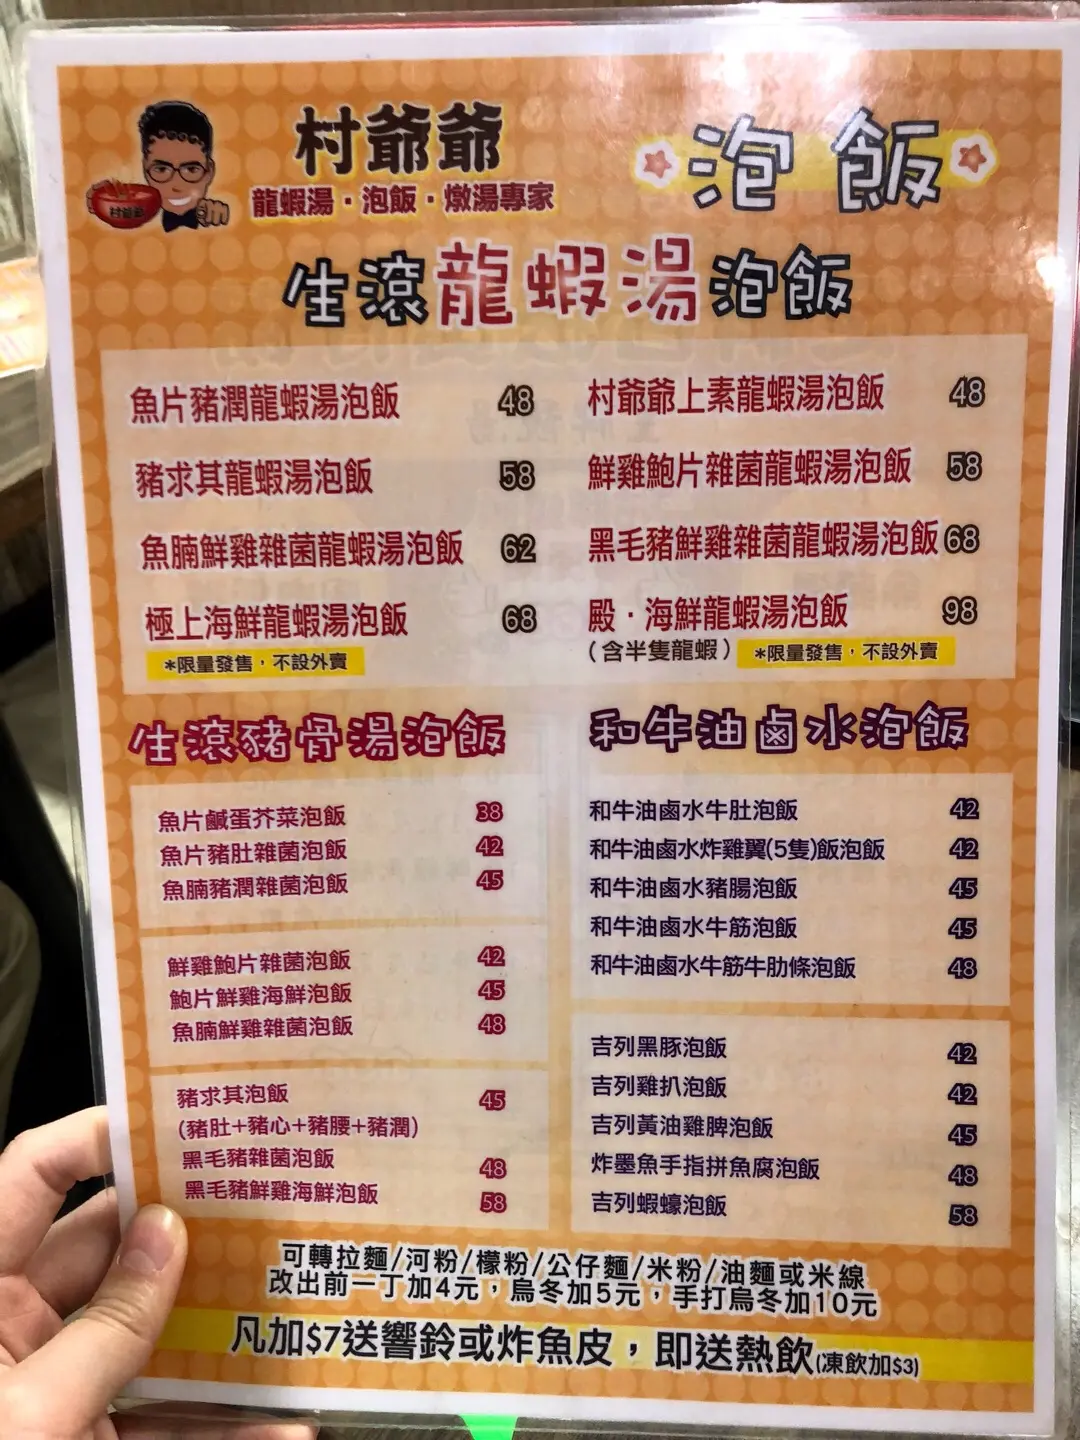 村爺爺
龍蝦湯・泡飯・燉湯專家
村爺爺
泡飯
生滾龍蝦湯泡飯
魚片豬潤龍蝦湯泡飯 48
豬求其龍蝦湯泡飯 58
魚腩鮮雞雜菌龍蝦湯泡飯 62
極上海鮮龍蝦湯泡飯 68
*限量發售，不設外賣
村爺爺上素龍蝦湯泡飯 48
鮮雞鮑片雜菌龍蝦湯泡飯 58
黑毛豬鮮雞雜菌龍蝦湯泡飯 68
殿・海鮮龍蝦湯泡飯 98
(含半隻龍蝦) *限量發售，不設外賣
生滾豬骨湯泡飯
魚片鹹蛋芥菜泡飯 38
魚片豬肚雜菌泡飯 42
魚腩豬潤雜菌泡飯 45
鮮雞鮑片雜菌泡飯 42
鮑片鮮雞海鮮泡飯 45
魚腩鮮雞雜菌泡飯 48
豬求其泡飯 45
(豬肚+豬心+豬腰+豬潤)
黑毛豬雜菌泡飯 48
黑毛豬鮮雞海鮮泡飯 58
和牛油鹵水泡飯
和牛油鹵水牛肚泡飯 42
和牛油鹵水炸雞翼(5隻)飯泡飯 42
和牛油鹵水豬腸泡飯 45
和牛油鹵水牛筋泡飯 45
和牛油鹵水牛筋牛肋條泡飯 48
吉列黑豚泡飯 42
吉列雞扒泡飯 42
吉列黃油雞脾泡飯 45
炸墨魚手指拼魚腐泡飯 48
吉列蝦蠔泡飯 58
可轉拉麵/河粉/檬粉/公仔麵/米粉/油麵或米線
改出前一丁加4元，烏冬加5元，手打烏冬加10元
凡加$7送響鈴或炸魚皮，即送熱飲(凍飲加$3)